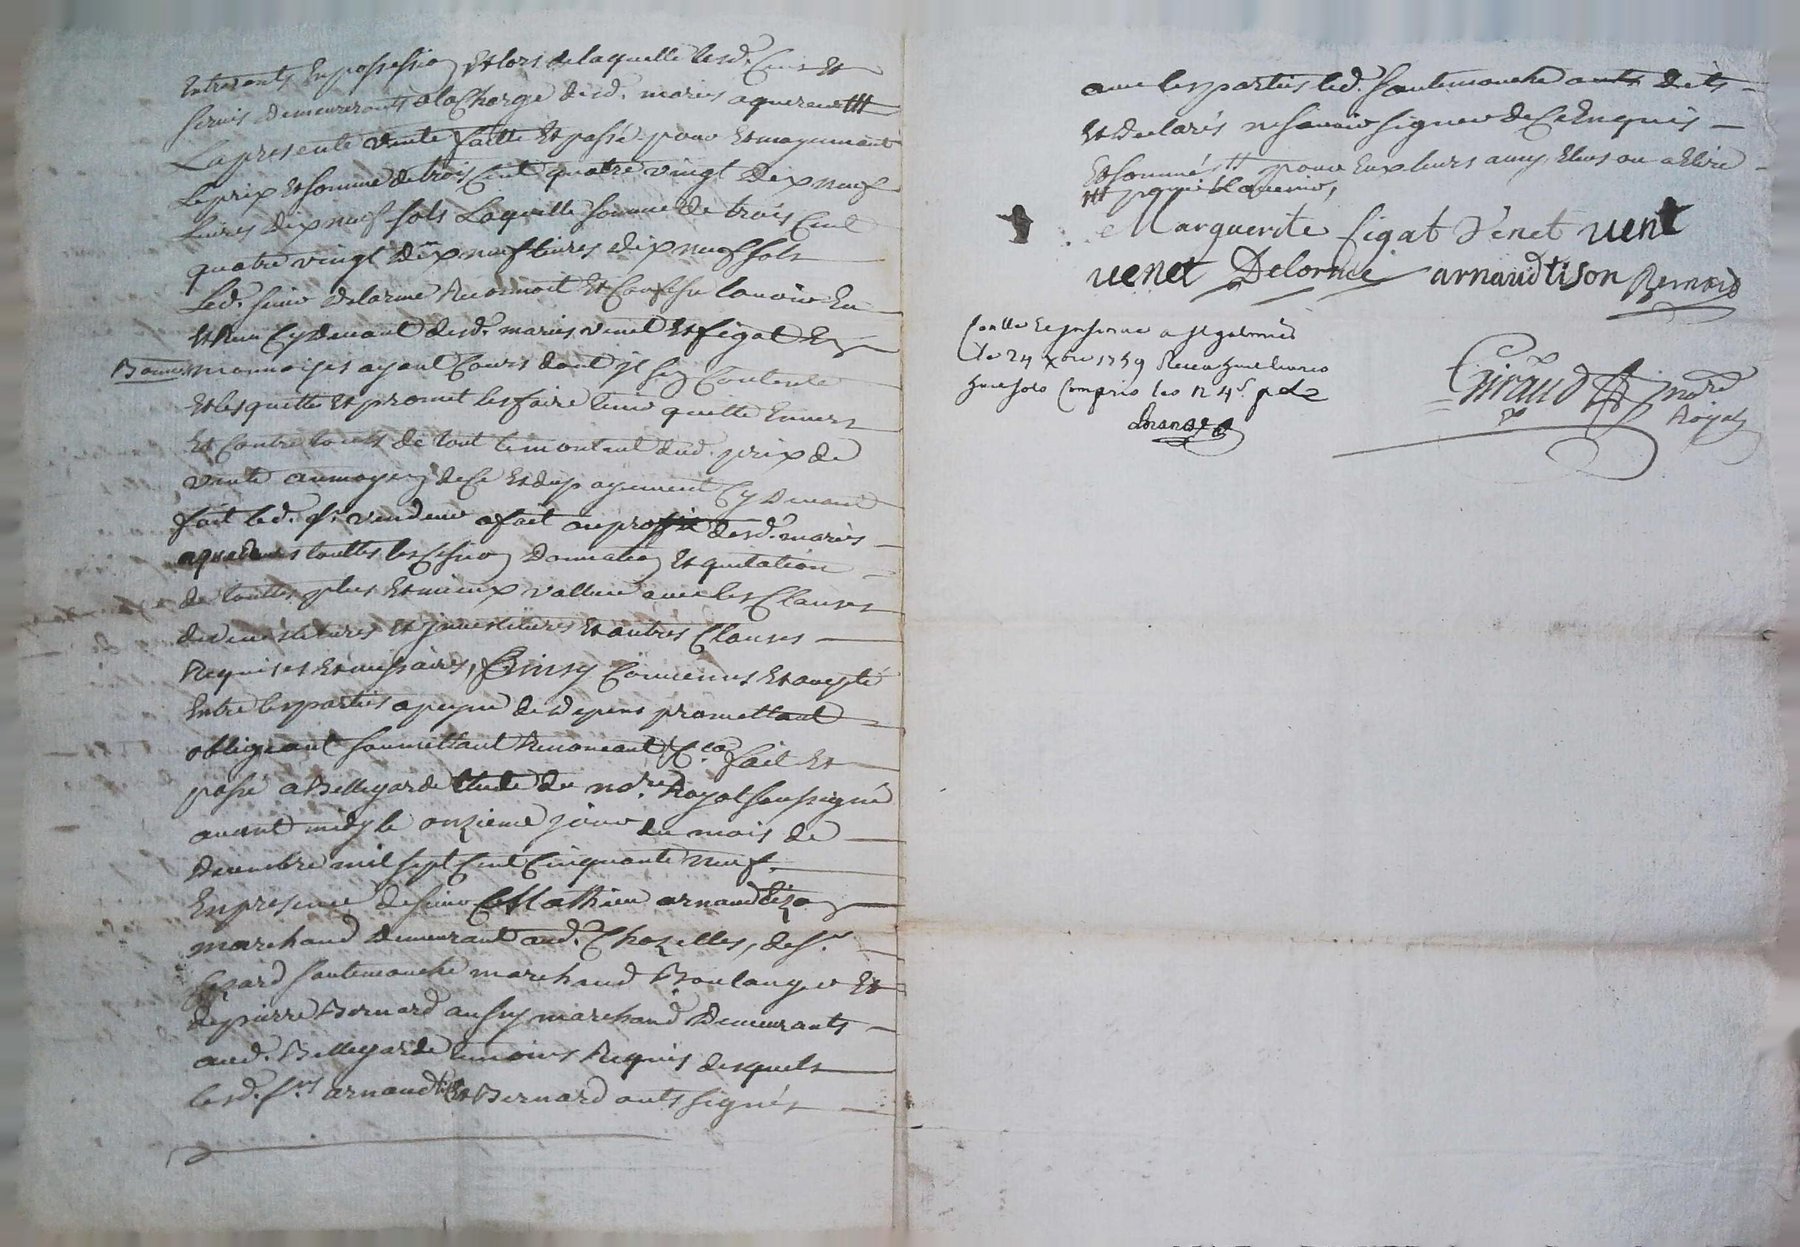 Entrerents En possession Et lors de laquelle lesd. Cens Et
servis demeurerants a la Charge desd. mariés aquereurs ///
La presente vente faitte Et passé pour Et moyennant
Le prix Et somme de trois Cent quatre vingt dix neuf
livres dix neuf sols Laquelle somme de trois Cent
quatre vingt dix neuf livres dix neuf sols
Led. sieur delorme Reconnoit Et Confesse lavoir Eu
Et Reçu Cy devant desd. mariés venet Et figat En
Bonnes monnoyes ayant Cours dont il sen Contente
Et les quitte Et promet les faire tenir quitte Envers
Et Contre touts de tout le montant dud. prix de
vente au moyen de Ce Et du payement Cy devant
fait led. sr. vendeur a fait au proffit desd. mariés
aquereurs touttes les Cession donnation Et quitation
de touttes plus Et mieux vallue avec les Clauses
devestitures Et jnvestitures Et autres Clauses
Requises Et nessaires, Ainsy Convenus Et accepté
Entre les parties a peyne de depens promettant
obligeant soumettant Renoncant &c.a fait Et
passé a Bellegarde Etude du no.re Royal soussigné
avant midy le onzieme jour du mois de
decembre mil sept Cent Cinquante neuf.
En presence de sieur Mathieu arnaudtizon
marchand demeurant aud. Chazelles, de sr.
sautemouche marchand Boulanger Et
de pierre Bernard aussy marchand demeurants
aud. Bellegarde temoins Requis desquels
lesd. srs. arnaudtison Et Bernard onts signés
avec les parties led. sautemouche onts dits
Et declarés ne savoir signer de Ce Enquis
Et sommés // pour Eux leurs amy Elus ou a Elire
///
Marguerite figat venet venet
venet Delorme arnaudtison Bernard
Conllé Et jnsinué a St galmier
Le 24 xbre 1759 Receu livres
sols Compris les 4s. p. l.
Giraud no.re
Royal